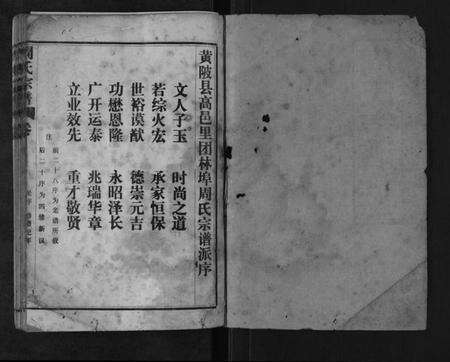 黄陂县高邑里团林埠周氏宗谱派序
文人子玉 时尚之道
若综火宏 承家恒保
世裕谟猷 德崇元吉
功懋恩隆 永昭泽长
广开运泰 兆瑞华章
立业效先 重才敬贤
注
前二十八序为老谱所载
后二十序为四修新议
氏宗谱